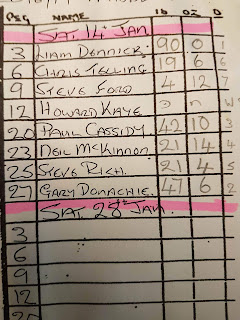 PEG NAME lb oz D
SAT 14th JAN
3 LIAM DENNICK. 90 0 1
6 CHRIS TELLING 19 6 6
9 STEVE FORD 4 12 7
12 HOWARD KAYE D N W
20 PAUL CASSIDY 42 10 3
23 NEIL McKINNON 21 14 4
25 STEVE RICH. 21 4 5
27 GARY DONACHIE. 47 6 2
SAT 28th JAN.
3
6
9
12
20